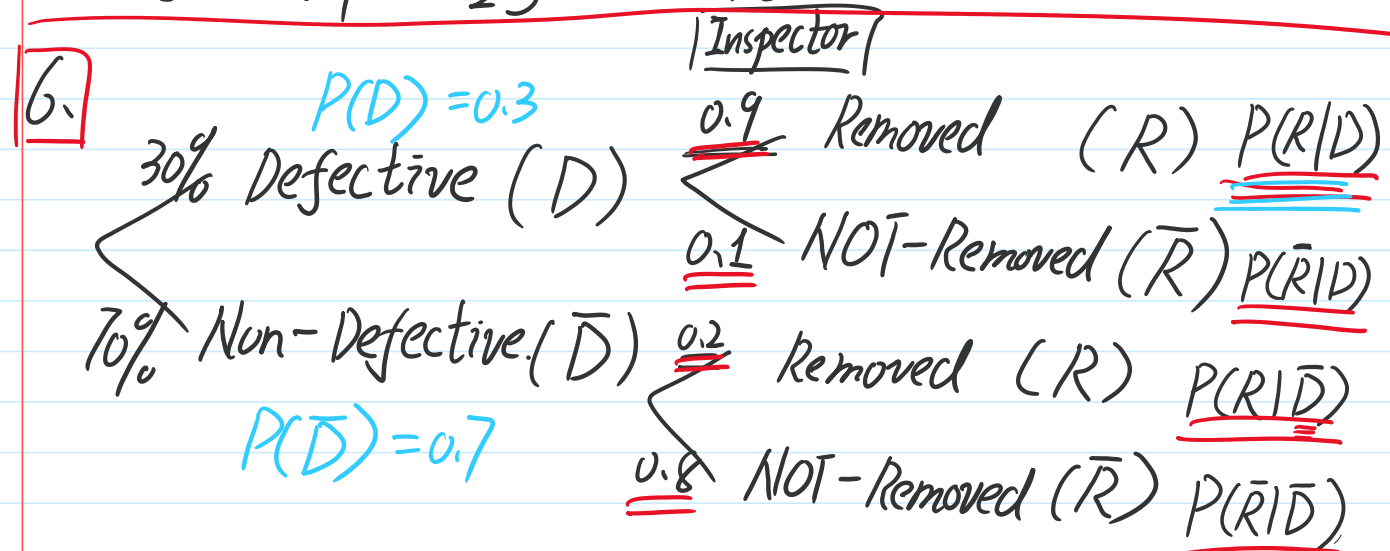 Inspector
6.
P(D) = 0.3
30% Defective (D)
0.9 Removed (R) P(R|D)
0.1 NOT-Removed (R̅) P(R̅|D)
70% Non-Defective. (D̅)
P(D̅) = 0.7
0.2 Removed (R) P(R|D̅)
0.8 NOT-Removed (R̅) P(R̅|D̅)